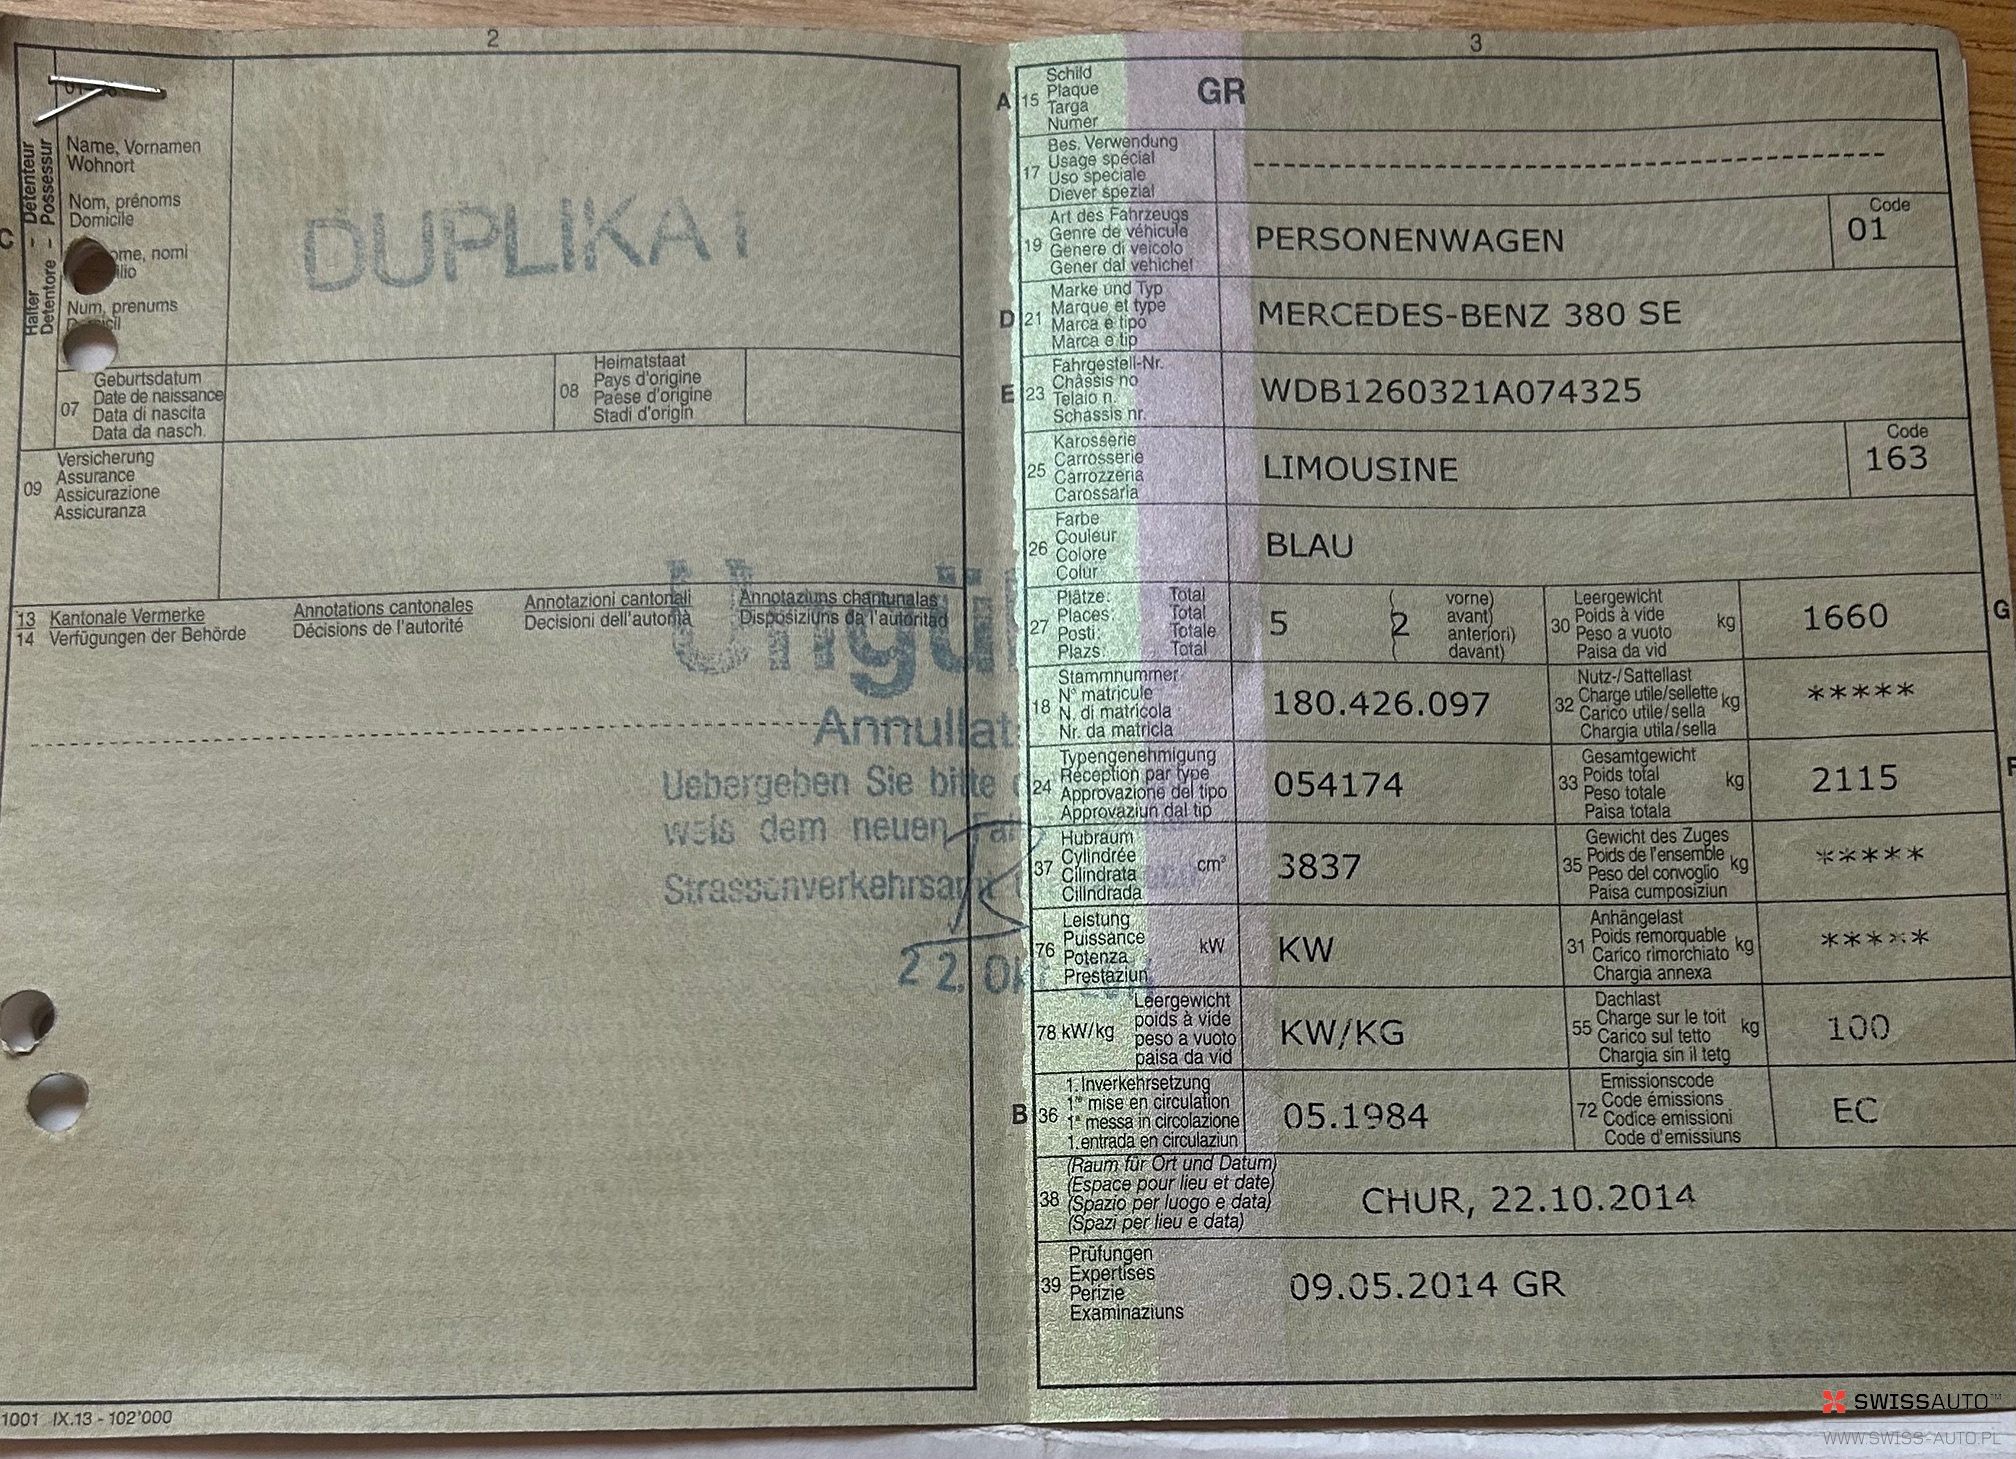 2
Halter - Detenteur
Detentore - Possessur
C
Name, Vornamen
Wohnort
Nom, prénoms
Domicile
ome, nomi
ilio
Num, prenums
07
Geburtsdatum
Date de naissance
Data di nascita
Data da nasch.
08
Heimatstaat
Pays d'origine
Paese d'origine
Stadi d'origin
09
Versicherung
Assurance
Assicurazione
Assicuranza
DUPLIKAT
13 Kantonale Vermerke
14 Verfügungen der Behörde
Annotations cantonales
Décisions de l'autorité
Annotazioni cantonali
Decisioni dell'autorità
Annotaziuns chantunalas
Disposiziuns da l'autoritad
Ungül
Annullat
Uebergeben Sie bitte d
weis dem neuen Fa
Strassenverkehrsamt
22. Okt
1001 IX.13 - 102'000
3
A 15
Schild
Plaque
Targa
Numer
GR
17
Bes. Verwendung
Usage spécial
Uso speciale
Diever spezial
19
Art des Fahrzeugs
Genre de véhicule
Genere di veicolo
Gener dal vehichel
PERSONENWAGEN
Code
01
D 21
Marke und Typ
Marque et type
Marca e tipo
Marca e tip
MERCEDES-BENZ 380 SE
E 23
Fahrgestell-Nr.
Châssis no
Telaio n.
Schassis nr.
WDB1260321A074325
25
Karosserie
Carrosserie
Carrozzeria
Carossaria
LIMOUSINE
Code
163
26
Farbe
Couleur
Colore
Colur
BLAU
27
Plätze: Total
Places: Total
Posti: Totale
Plazs: Total
5
( vorne)
( 2 avant)
( anteriori)
( davant)
30
Leergewicht
Poids à vide
Peso a vuoto kg
Paisa da vid
1660
G
18
Stammnummer
N° matricule
N. di matricola
Nr. da matricla
180.426.097
32
Nutz-/Sattellast
Charge utile/sellette kg
Carico utile/sella
Chargia utila/sella
*****
24
Typengenehmigung
Réception par type
Approvazione del tipo
Approvaziun dal tip
054174
33
Gesamtgewicht
Poids total kg
Peso totale
Paisa totala
2115
F
37
Hubraum
Cylindrée
Cilindrata cm³
Cilindrada
3837
35
Gewicht des Zuges
Poids de l'ensemble kg
Peso del convoglio
Paisa cumposiziun
*****
76
Leistung
Puissance kW
Potenza
Prestaziun
KW
31
Anhängelast
Poids remorquable kg
Carico rimorchiato
Chargia annexa
*****
78 kW/kg
Leergewicht
poids à vide
peso a vuoto
paisa da vid
KW/KG
55
Dachlast
Charge sur le toit kg
Carico sul tetto
Chargia sin il tetg
100
B 36
1. Inverkehrsetzung
1re mise en circulation
1a messa in circolazione
1. entrada en circulaziun
05.1984
72
Emissionscode
Code émissions
Codice emissioni
Code d'emissiuns
EC
38
(Raum für Ort und Datum)
(Espace pour lieu et date)
(Spazio per luogo e data)
(Spazi per lieu e data)
CHUR, 22.10.2014
39
Prüfungen
Expertises
Perizie
Examinaziuns
09.05.2014 GR
SWISSAUTO™
WWW.SWISS-AUTO.PL